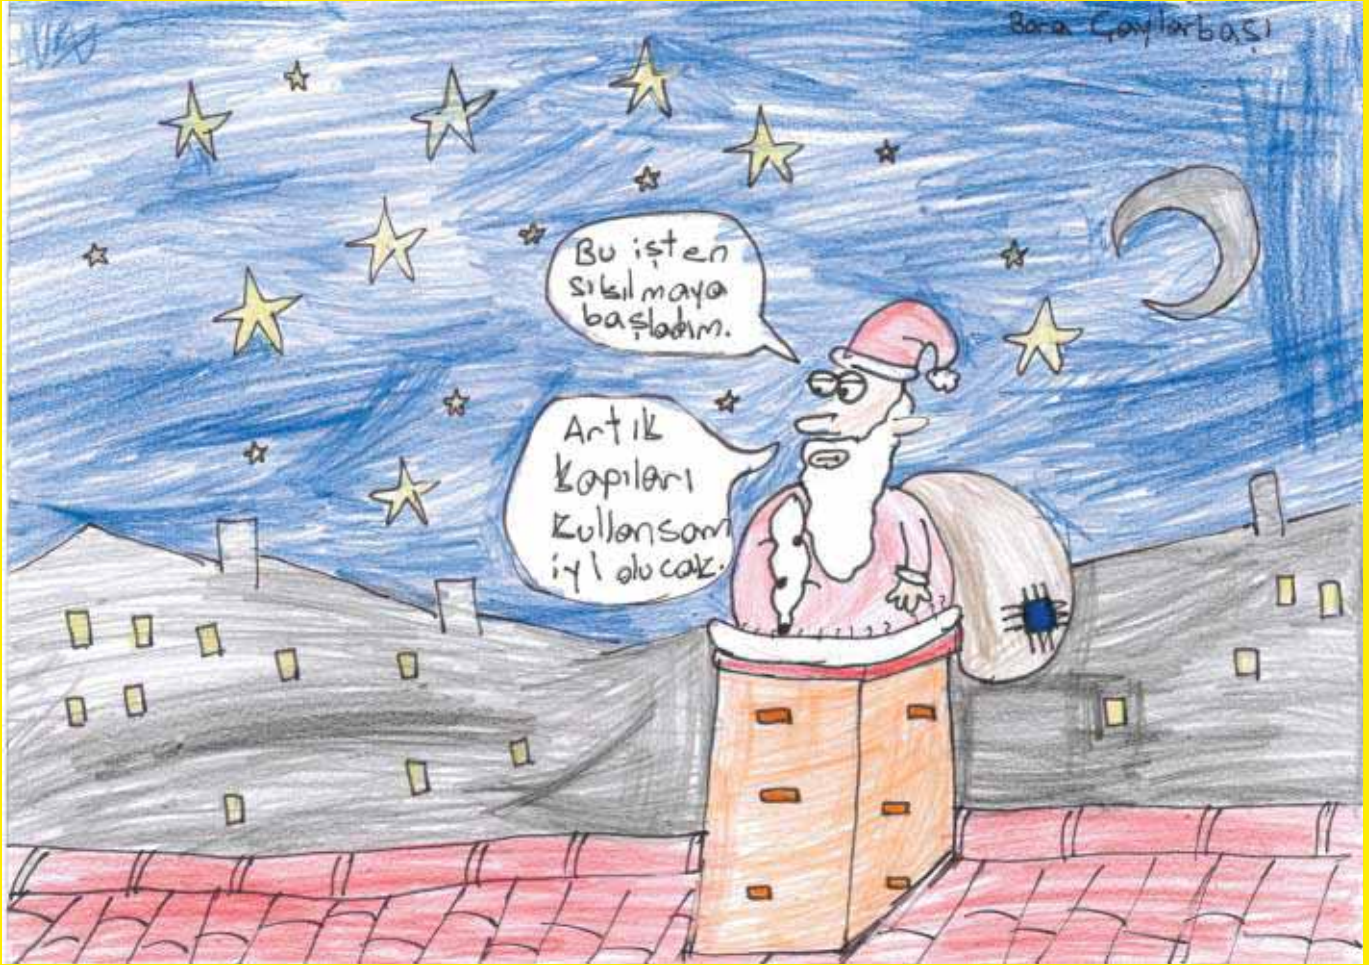 Bora Çaylarbaşı
Bu işten
sıkılmaya
başladım.
Artık
kapıları
kullansam
iyi olucak.